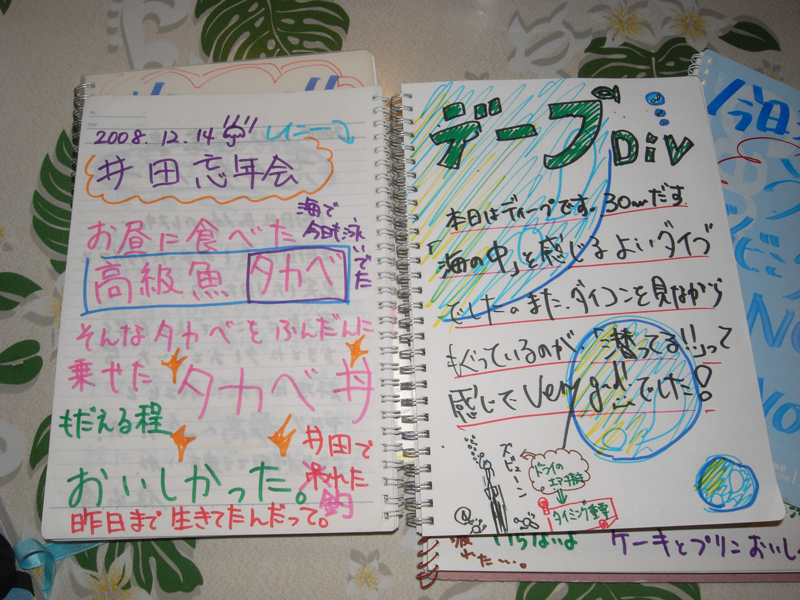 2008.12.14
レイニー
井田忘年会
お昼に食べた
海で
今日も泳いでた
高級魚 タカベ
そんなタカベをふんだんに
乗せた タカベ丼
もだえる程
おいしかった。
井田で
釣れた
昨日まで生きてたんだって。
ディープ DiV
本日はディープです。30mだす
「海の中」を感じるよいダイブ
でした。また、ダイコンを見ながら
もぐっているのが、「潜ってる!!」って
感じで Very good!でした!
ズビューン
ドライの
エア排気
タイミング重要
疲れた…。
いらないよ
ケーキとプリンおいし
今日
NO